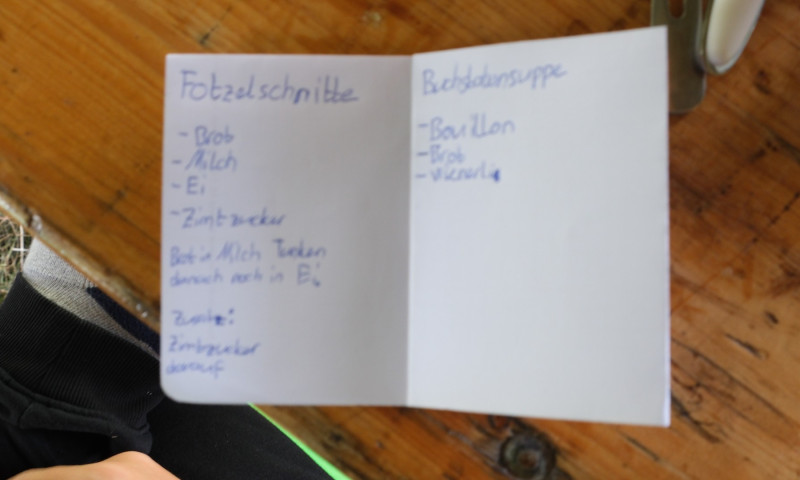 Fotzelschnitte
- Brot
- Milch
- Ei
- Zimtzucker
Brot in Milch Tunken
danach noch in Ei
Zimtzucker
darauf
Buchstabensuppe
- Bouillon
- Brot